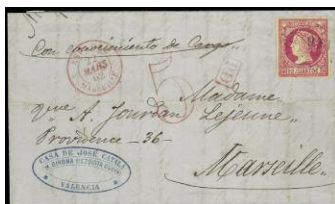 Con conocimiento de Cargo
MARS
62
MARSEILLE
5
PD
Madame
rue A. Jourdan Lejeune
Providence - 36 -
Marseille.
CASA DE JOSÉ CAVILA
VALENCIA